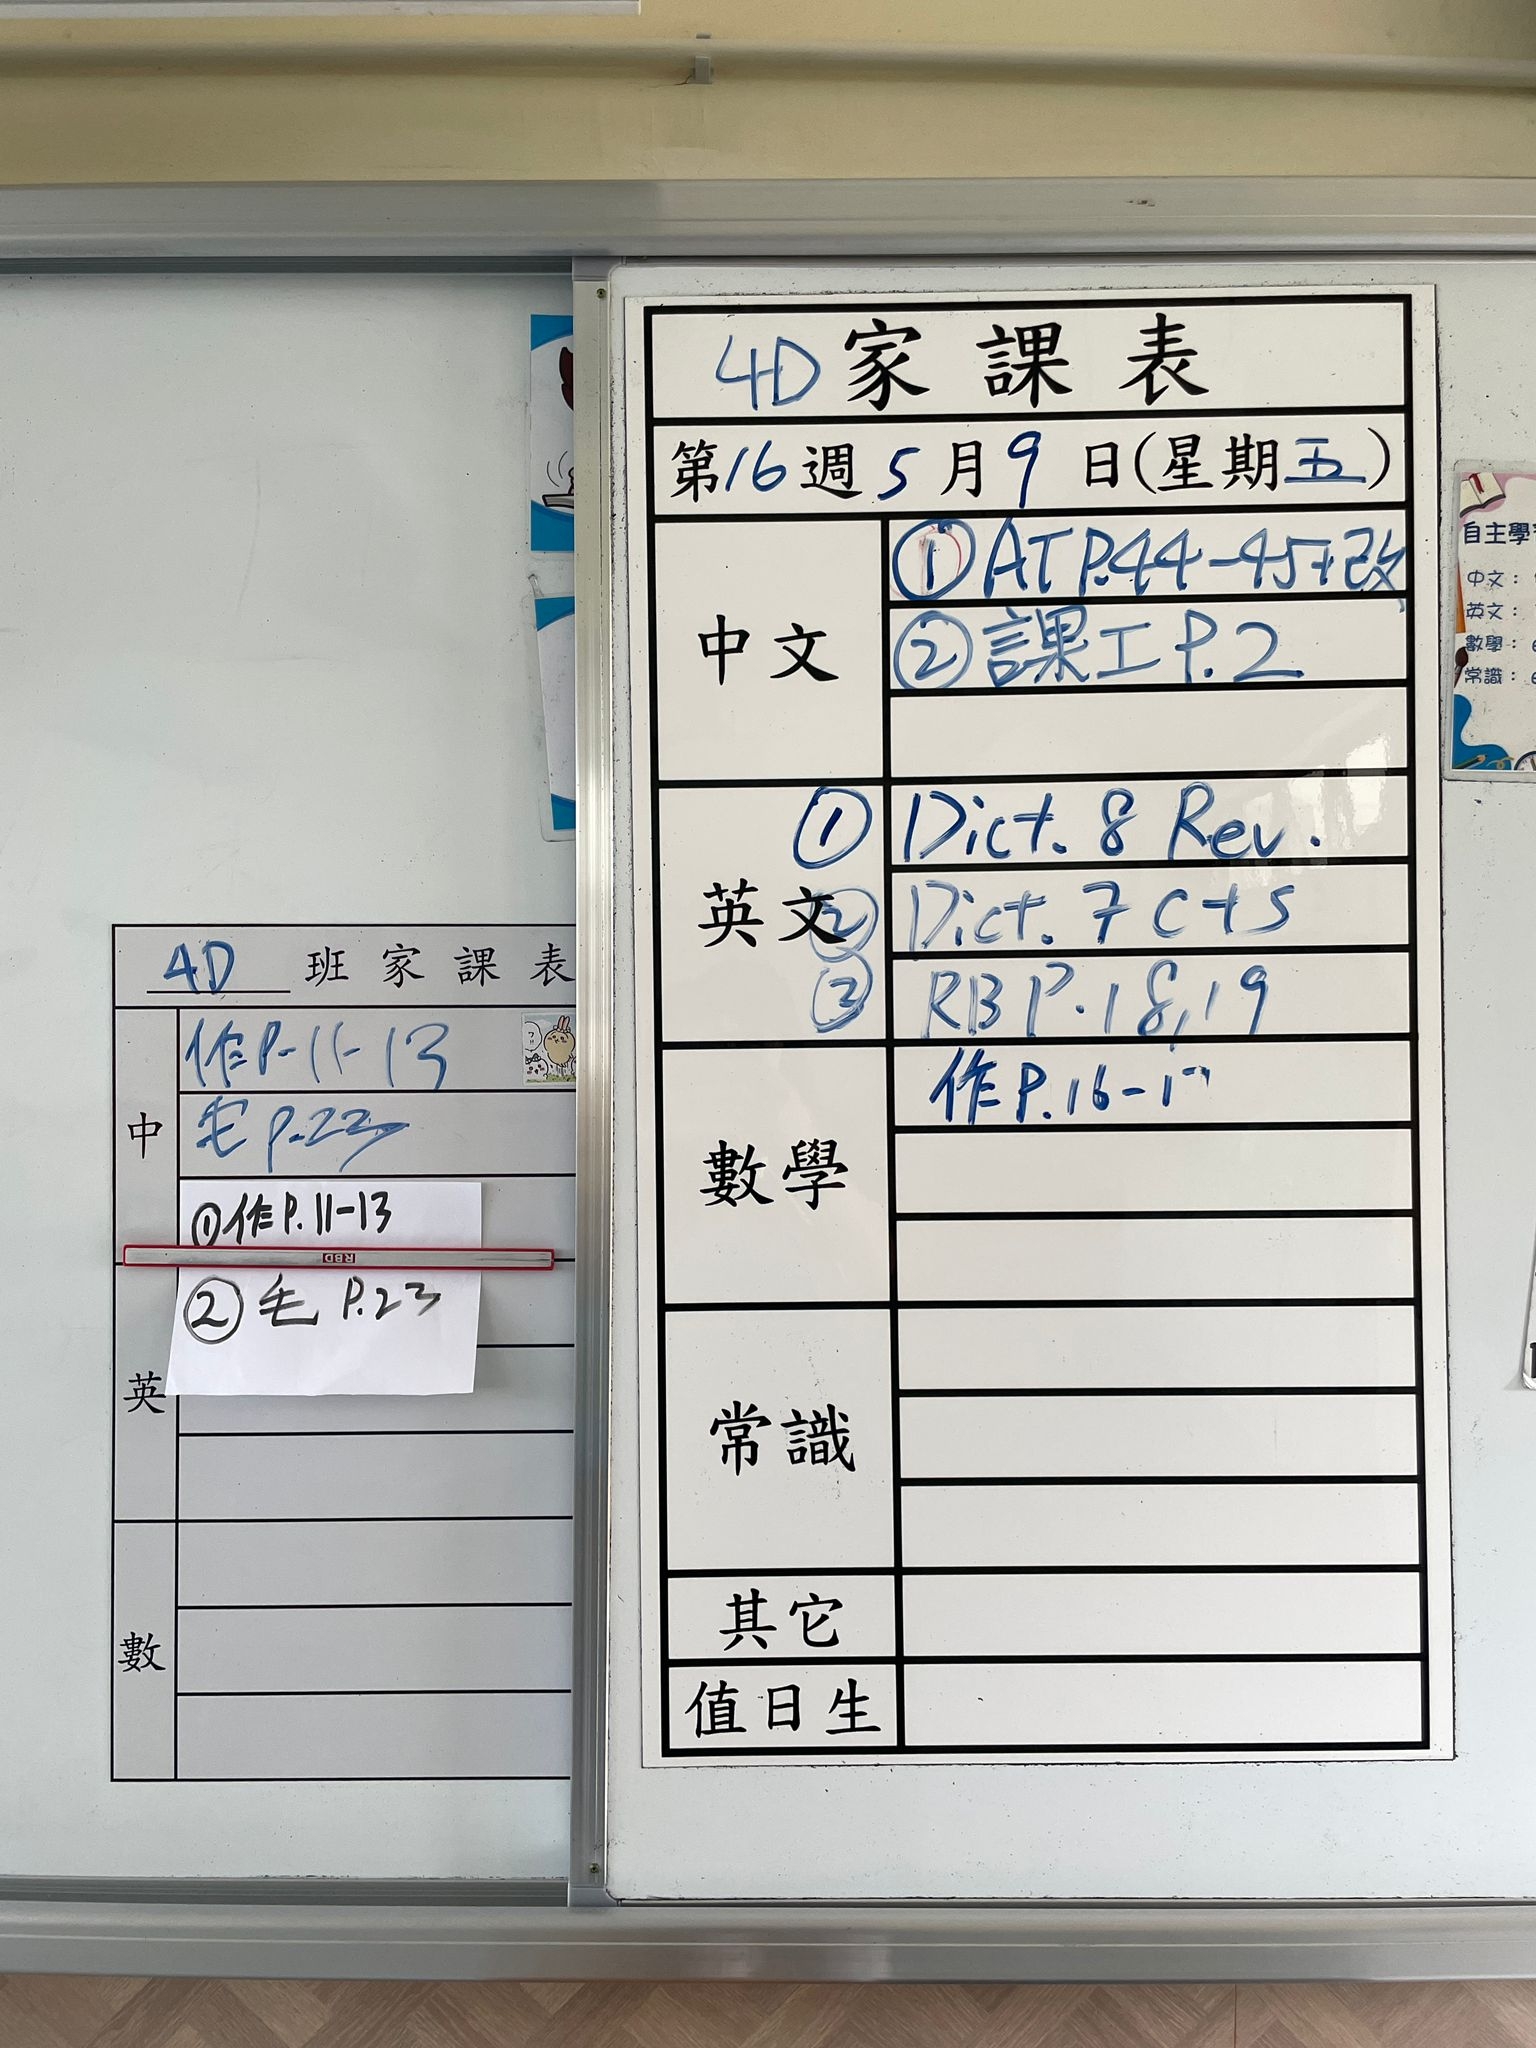 4D 家課表
第16週 5月9日(星期五)
中文
① AT P.44-45+改
② 課工 P.2
英文
① Dict. 8 Rev.
② Dict. 7 cts
③ RB P.18,19
數學
作 P.16-1
常識
其它
值日生
4D 班家課表
中
作 P.11-13
毛 P.23
① 作 P.11-13
RBD
② 毛 P.23
英
數
自主學
中文：
英文：
數學：
常識：